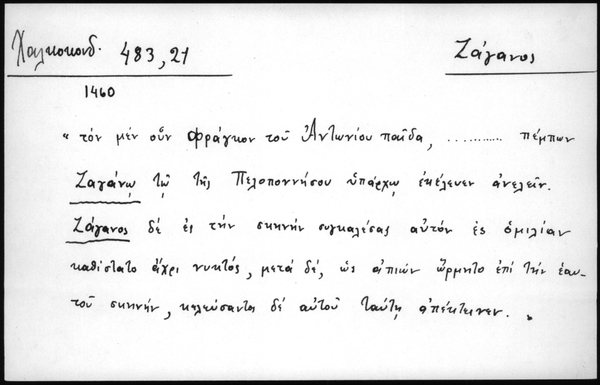 Χαλκοκονδ. 483,21 Ζάγανος
1460
" τόν μέν οὖν Φράγκον τοῦ Ἀντωνίου παῖδα, ............ πέμπων
Ζαγάνῳ τῷ τῆς Πελοποννήσου ὑπάρχῳ ἐκέλευεν ἀνελεῖν.
Ζάγανος δέ ἐς τήν σκηνήν συγκαλέσας αὐτόν ἐς ὁμιλίαν
καθίστατο ἄχρι νυκτός, μετά δέ, ὡς ἀπιών ὥρμητο ἐπί τήν ἑαυ-
τοῦ σκηνήν, κελεύσαντος δέ αὐτοῦ ταύτῃ ἀπέκτεινεν. "